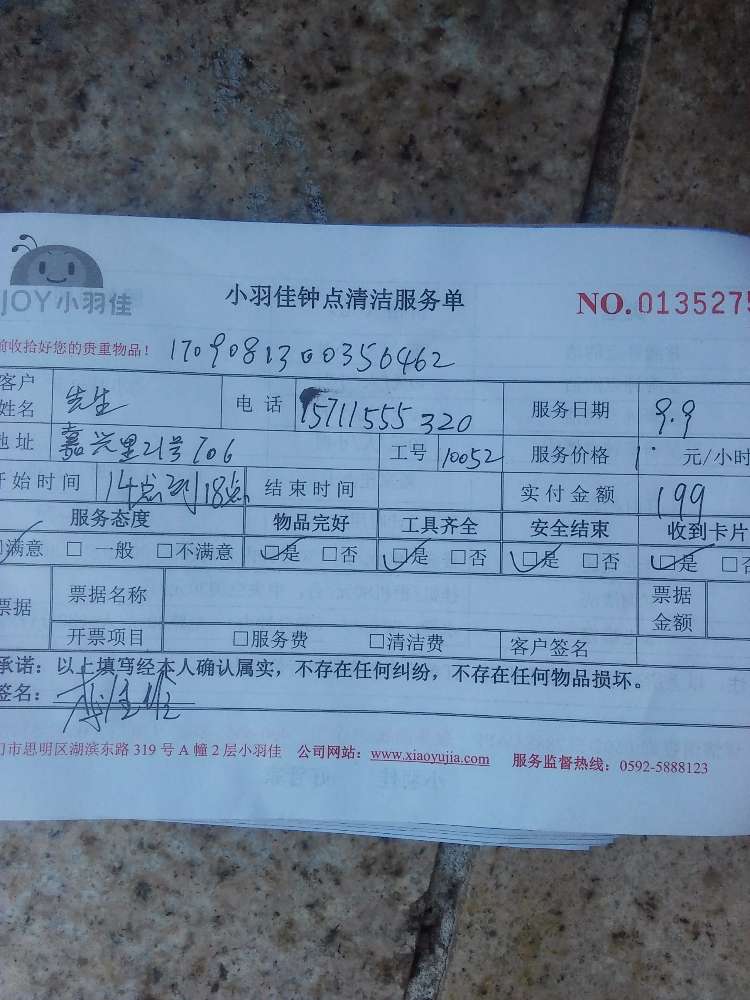 JOY小羽佳 小羽佳钟点清洁服务单 NO.0135275
前收拾好您的贵重物品！ 17090813000356462
客户姓名 先生 电话 15711555320 服务日期 9.9
地址 嘉兴里21号706 工号 10052 服务价格 1 元/小时
开始时间 14点到18点 结束时间 实付金额 199
服务态度 物品完好 工具齐全 安全结束 收到卡片
☑满意 □一般 □不满意 ☑是 □否 ☑是 □否 ☑是 □否 ☑是 □否
票据 票据名称 票据金额
开票项目 □服务费 □清洁费 客户签名
承诺：以上填写经本人确认属实，不存在任何纠纷，不存在任何物品损坏。
签名：
门市思明区湖滨东路 319 号 A 幢 2 层小羽佳 公司网站：www.xiaoyujia.com 服务监督热线：0592-5888123